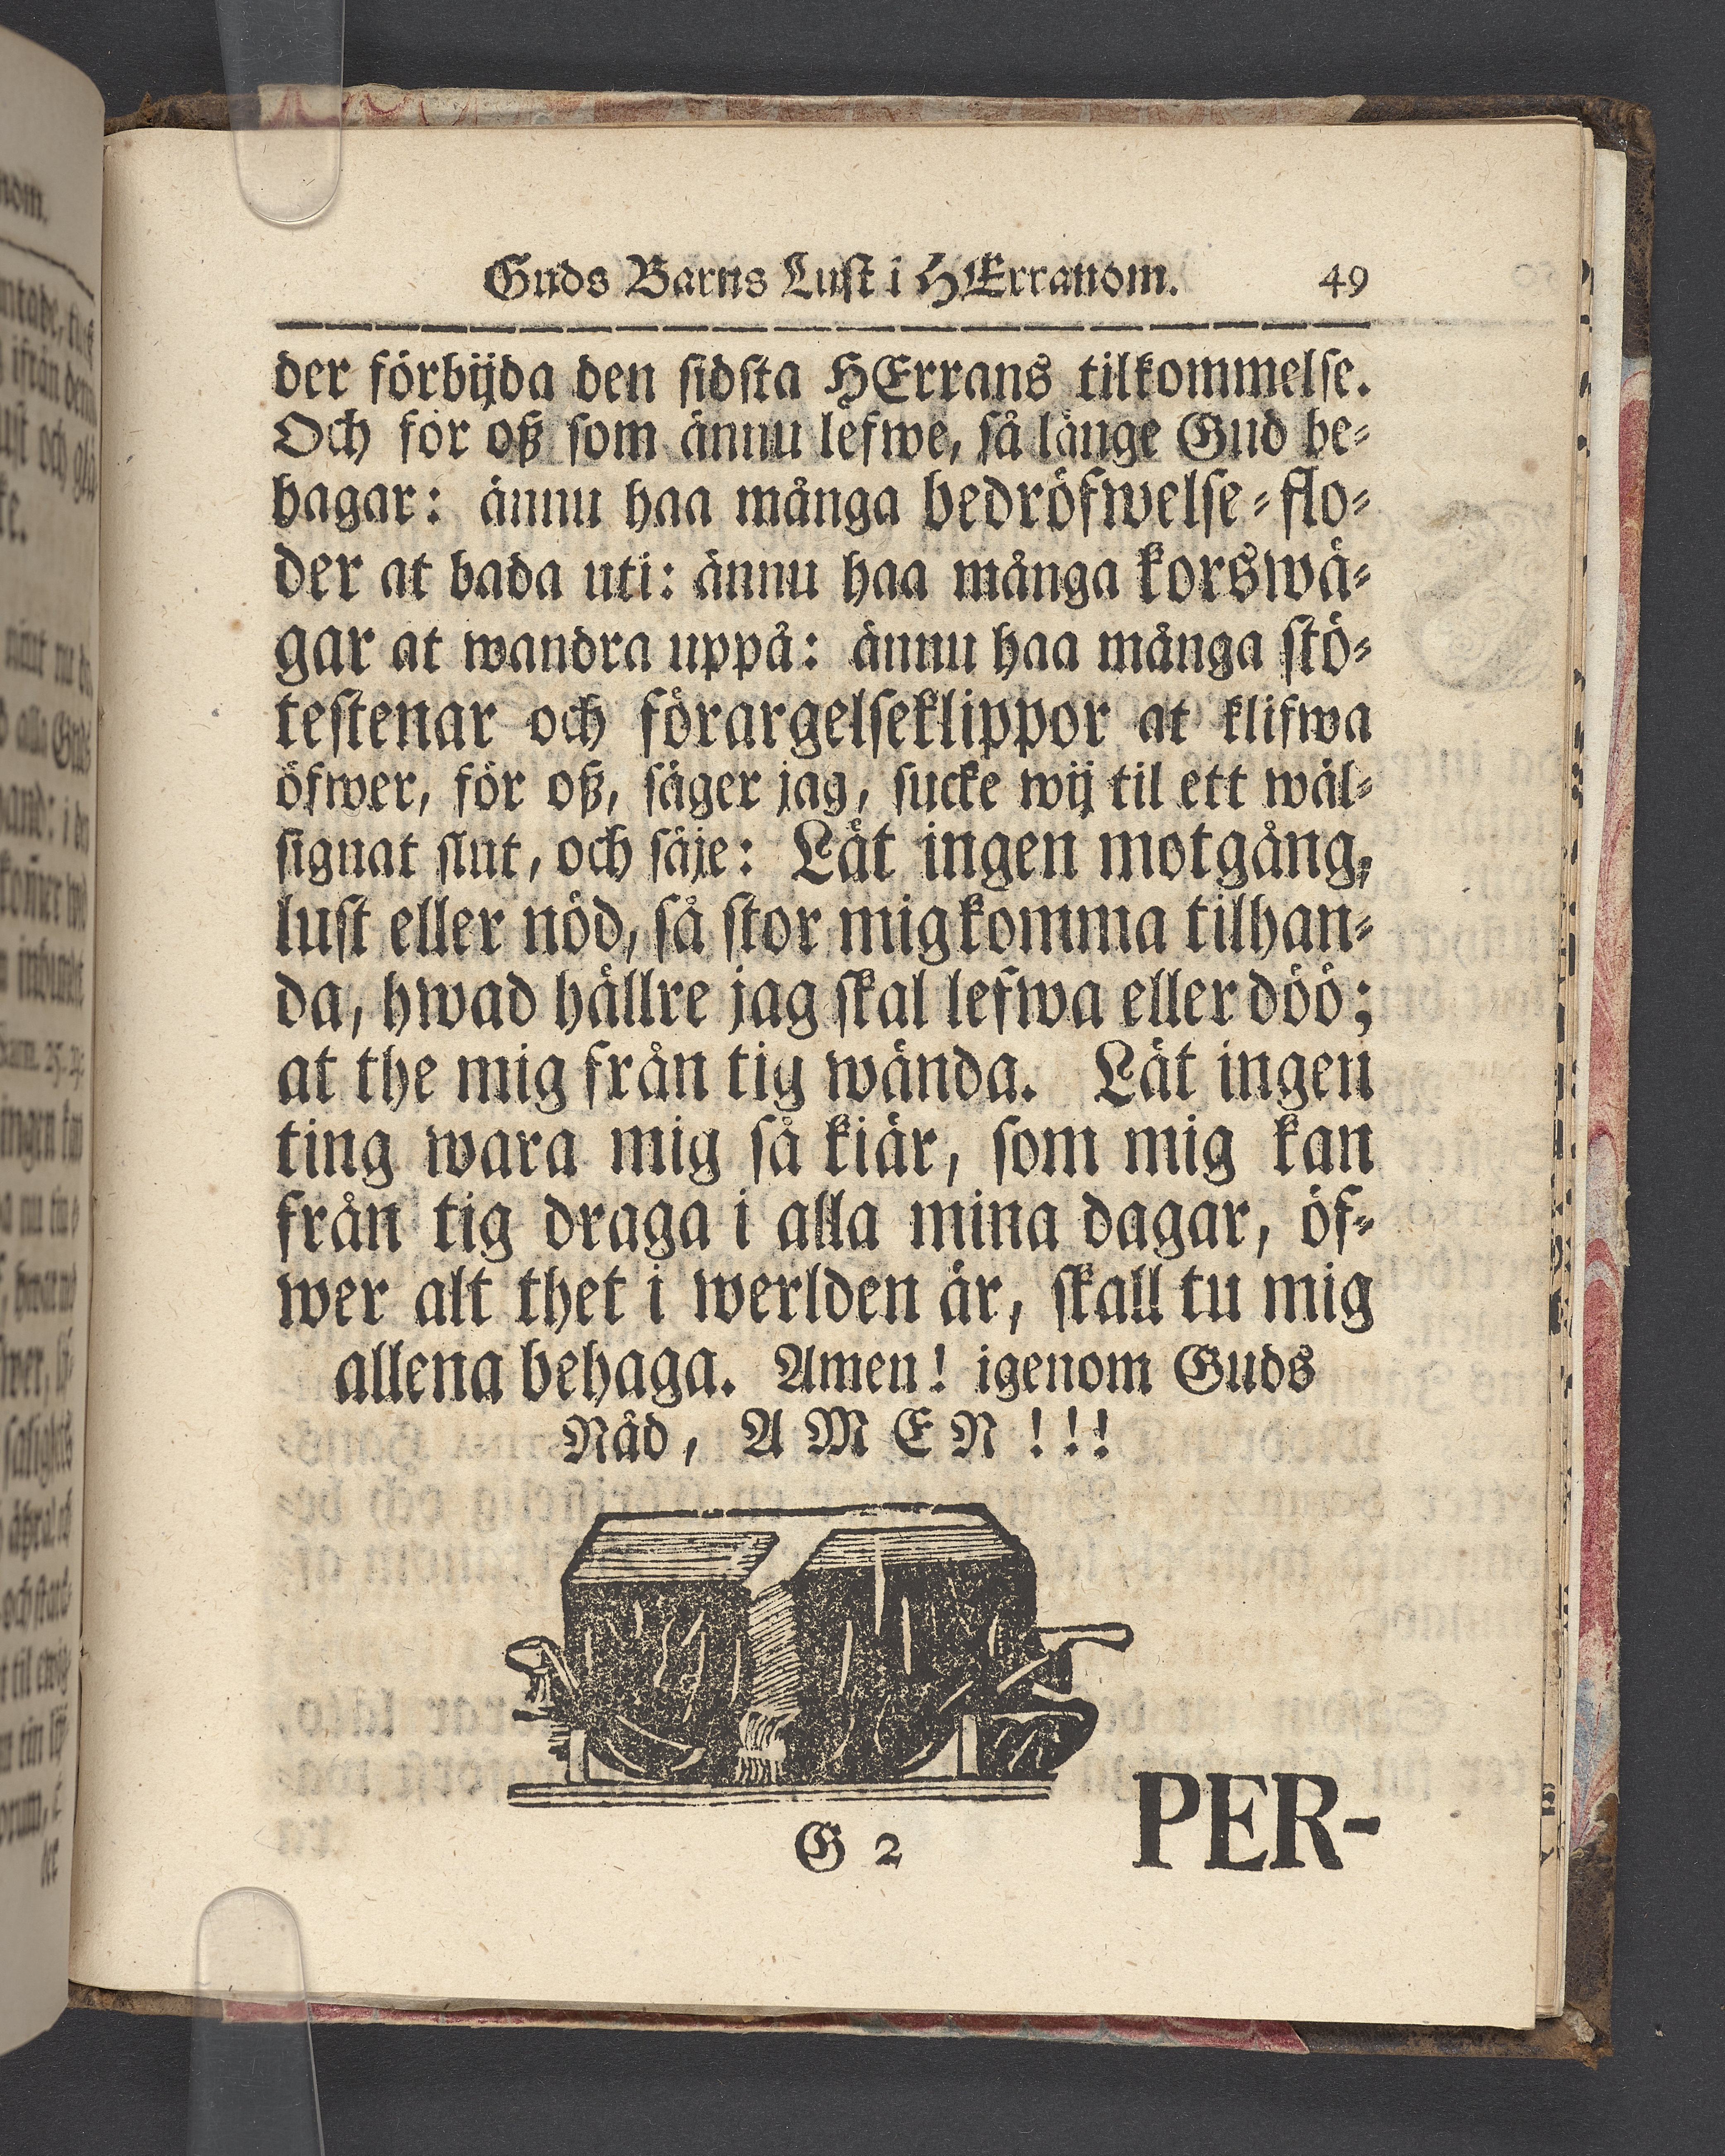 Guds Barns Lust i HErranom. 49
der förbijda den sidsta HErrans tilkommelse.
Och för oß som ännu lefwe, så länge Gud be-
hagar: ännu haa många bedröfwelse-flo-
der at bada uti: ännu haa många korswä-
gar at wandra uppå: ännu haa många stö-
testenar och förargelseklippor at klifwa
öfwer, för oß, säger jag, sucke wij til ett wäl-
signat slut, och säje: Låt ingen motgång,
lust eller nöd, så stor mig komma tilhan-
da, hwad hällre jag skal lefwa eller döö;
at the mig från tig wända. Låt ingen
ting wara mig så kiär, som mig kan
från tig draga i alla mina dagar, öf-
wer alt thet i werlden är, skall tu mig
allena behaga. Amen! igenom Guds
Nåd, AMEN!!!
G 2 PER-